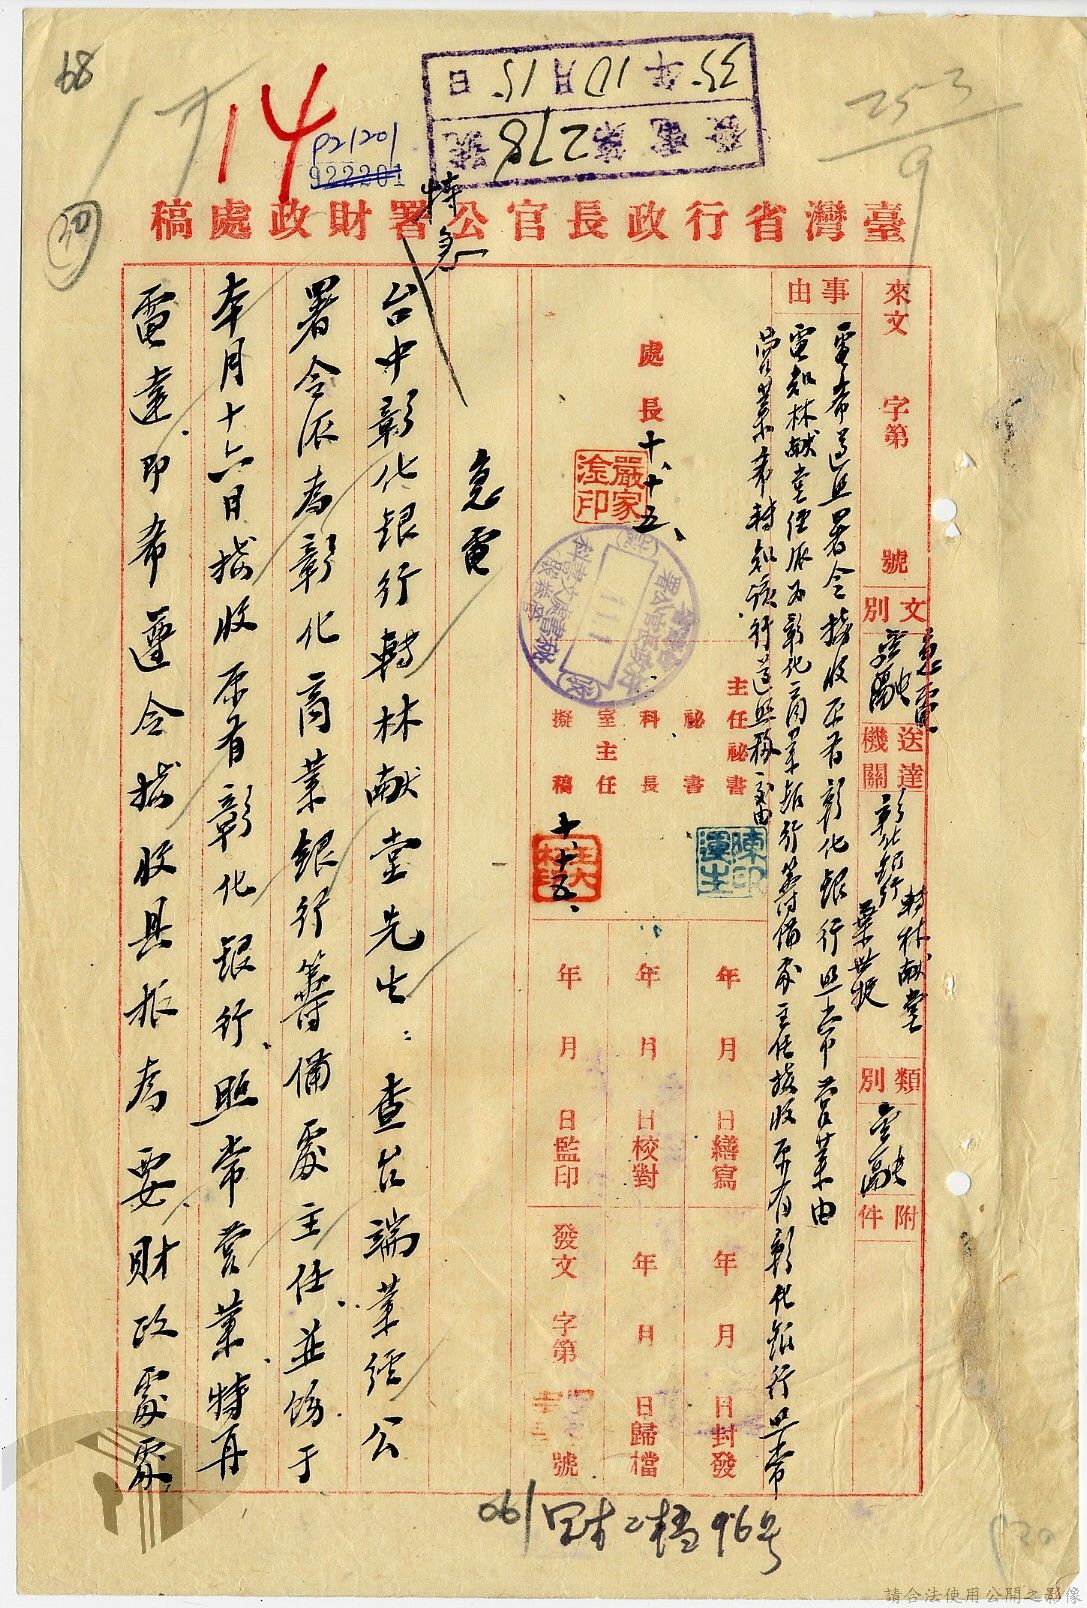 68
14
P21201
922201
35年10月15日
發電第278號
253
9
特急
臺灣省行政長官公署財政處稿
來文 字第 號
文別
急電
金融
送達機關
彰化銀行
轉林献堂
葉世
類別
金融
附件
事由
電希遵照署令接收原有彰化銀行照常營業由
電知林献堂經派為彰化商業銀行籌備處主任接收原有彰化銀行照常
營業希轉知該行遵照移交由
處長
十、十五、
嚴家淦印
主任秘書
秘書
科長
室主任
擬稿
十、十五、
年 月 日繕寫
年 月 日校對
年 月 日監印
年 月 日封發
年 月 日歸檔
發文 字第 號
急電
台中彰化銀行轉林献堂先生：查台端業經公
署令派為彰化商業銀行籌備處主任並飭于
本月十六日接收原有彰化銀行照常營業特再
電達即希遵令接收具報為要財政處處
061
檔96号
請合法使用公開之影像